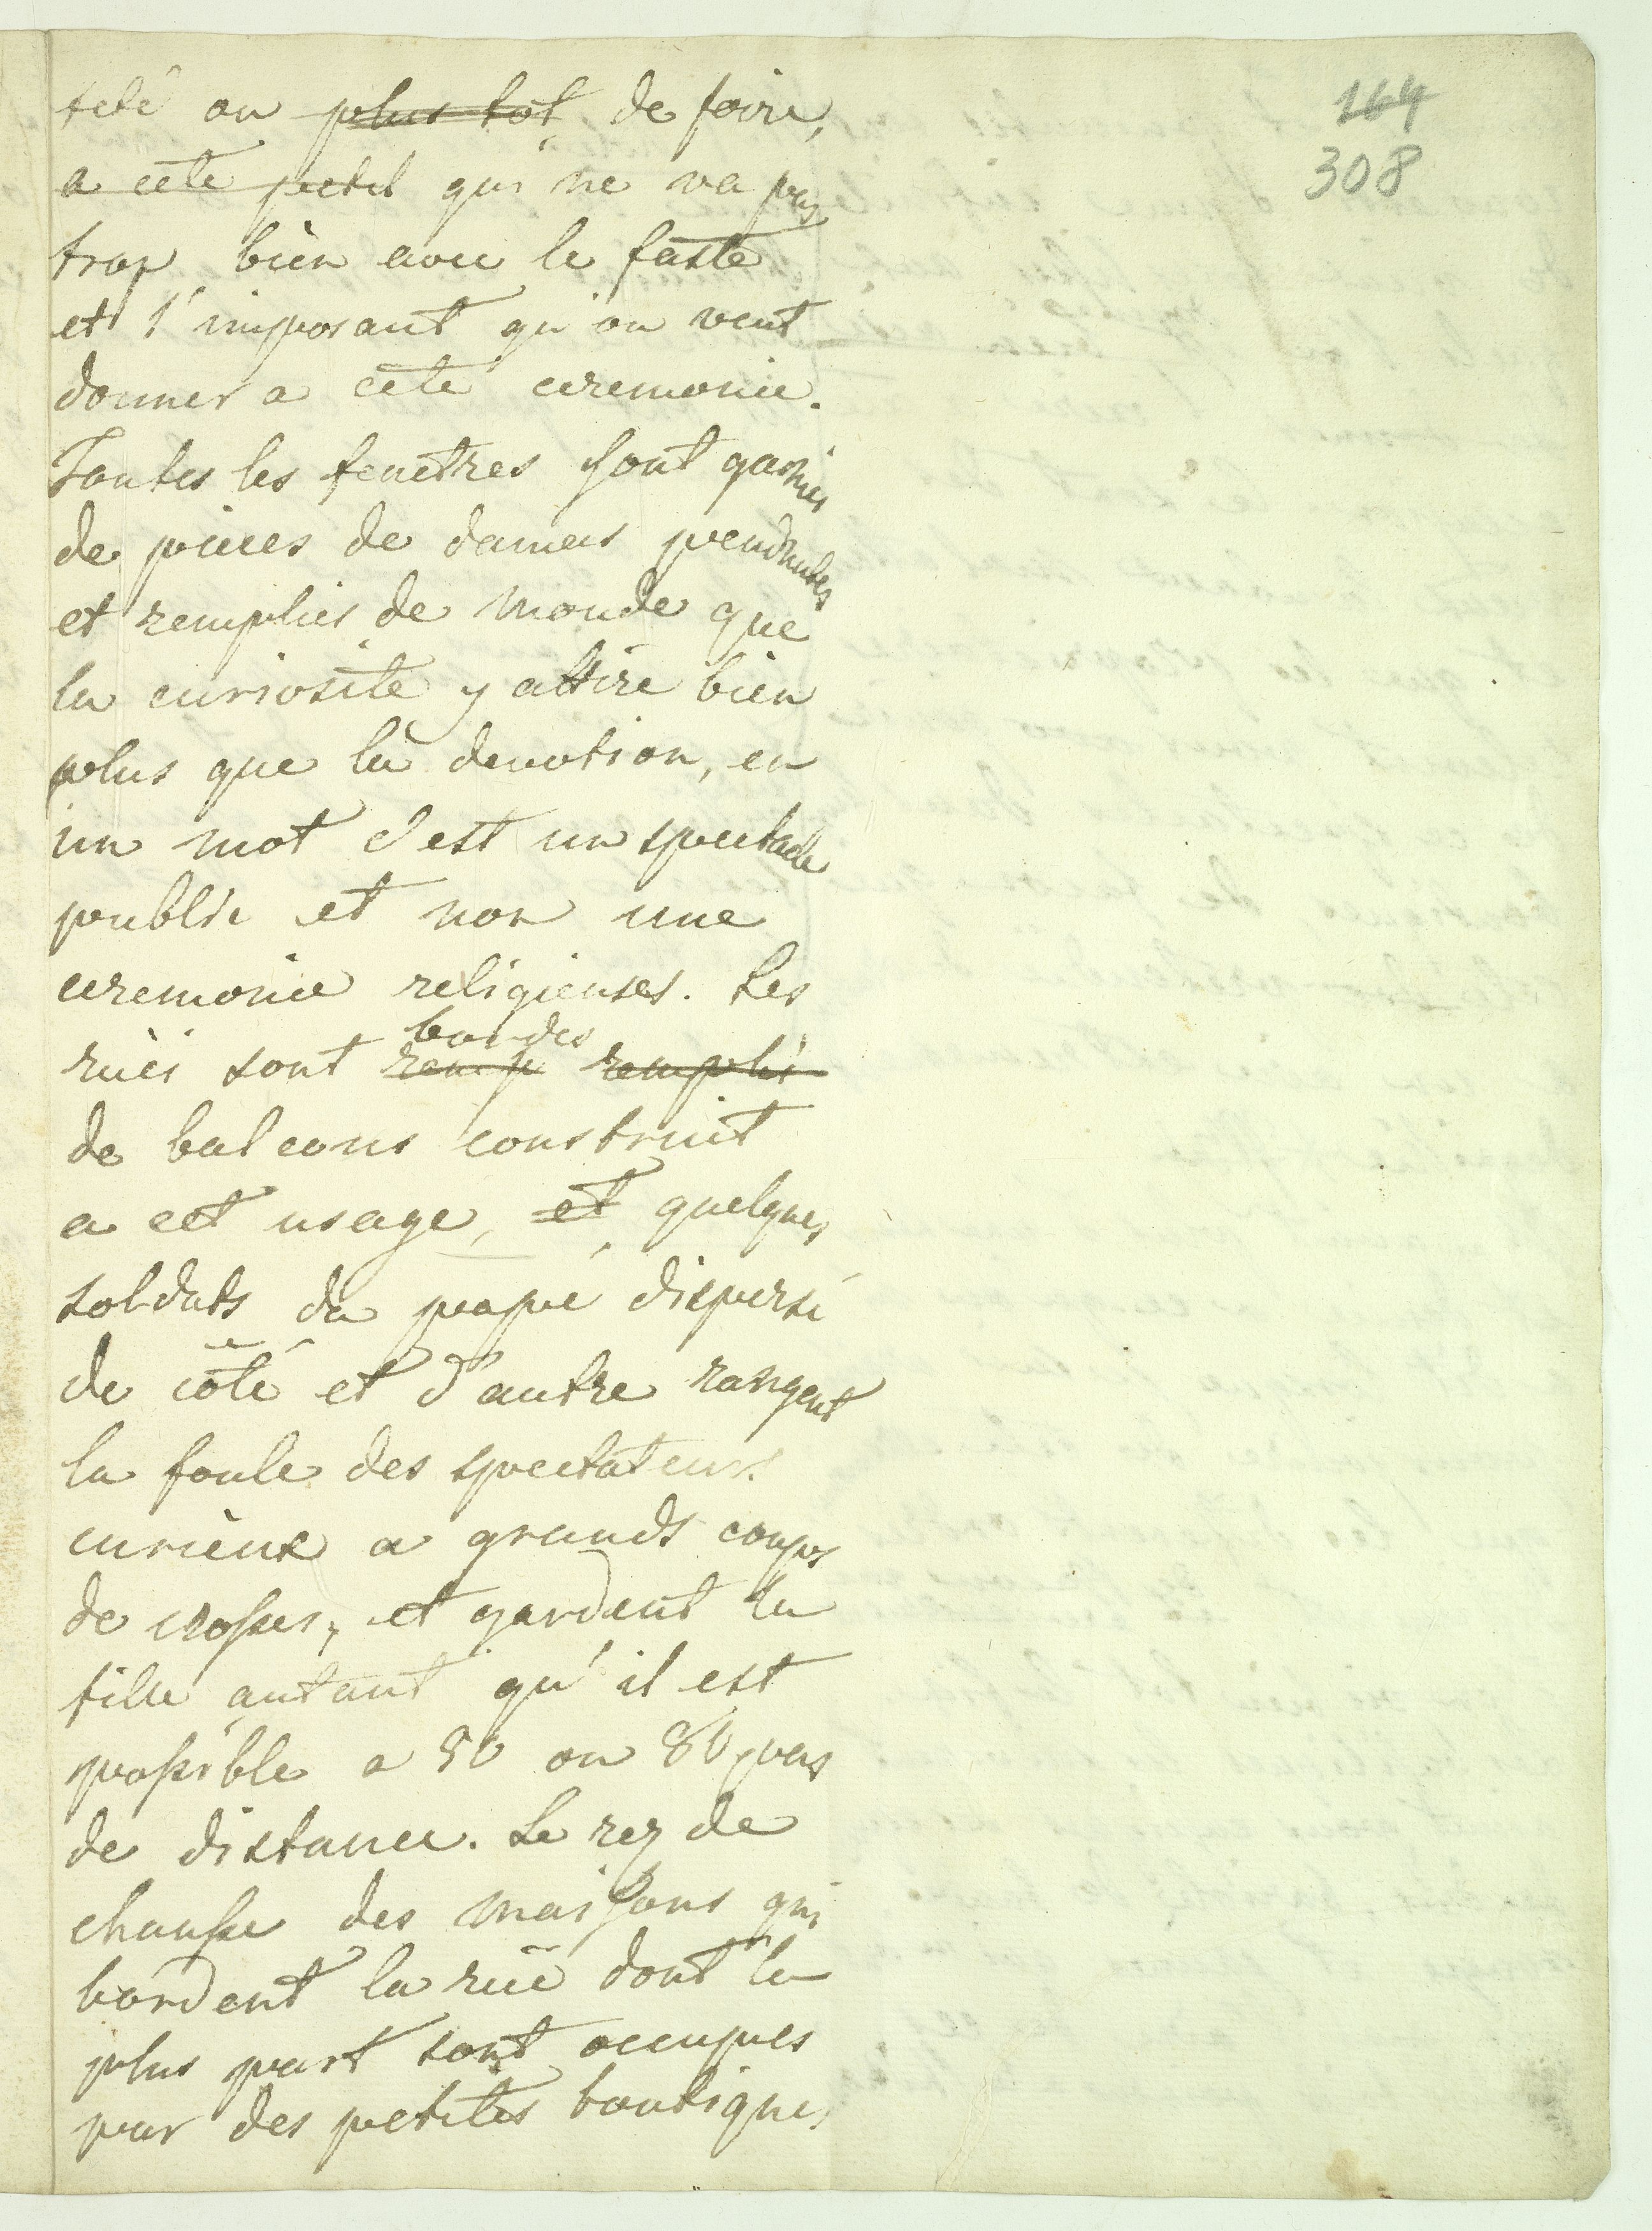 164
308
telé ou plus tot de foire,
a cete petit qui ne va pas
trop bien avec le faste
et l'imposant qu'on veut
donner a cete ceremonie.
Toutes les fenetres sont garnies
de pieces de damas pendantes
et remplies de monde que
la curiosité y attire bien
plus que la devotion, en
un mot c'est un spectacle
public et non une
ceremonie religieuses. Les
bordes
rües sont remp rempli
de balcons construit
a cet usage, et quelques
soldats du pape dispersé
de côté et d'autre rangent
la foule des spectateurs
curieux a grands coups
de crosses, et gardent la
fille autant qu'il est
possible a 50 ou 80 pas
de distance. Le rez de
chausse des maisons qui
bordent la rüe dont la
plus part sont occupes
par des petites boutiques